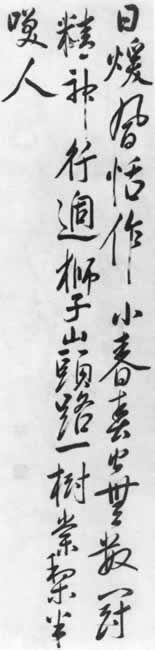 日煖風恬作小春無數
精神行過獅子山頭路一樹棠梨半
人